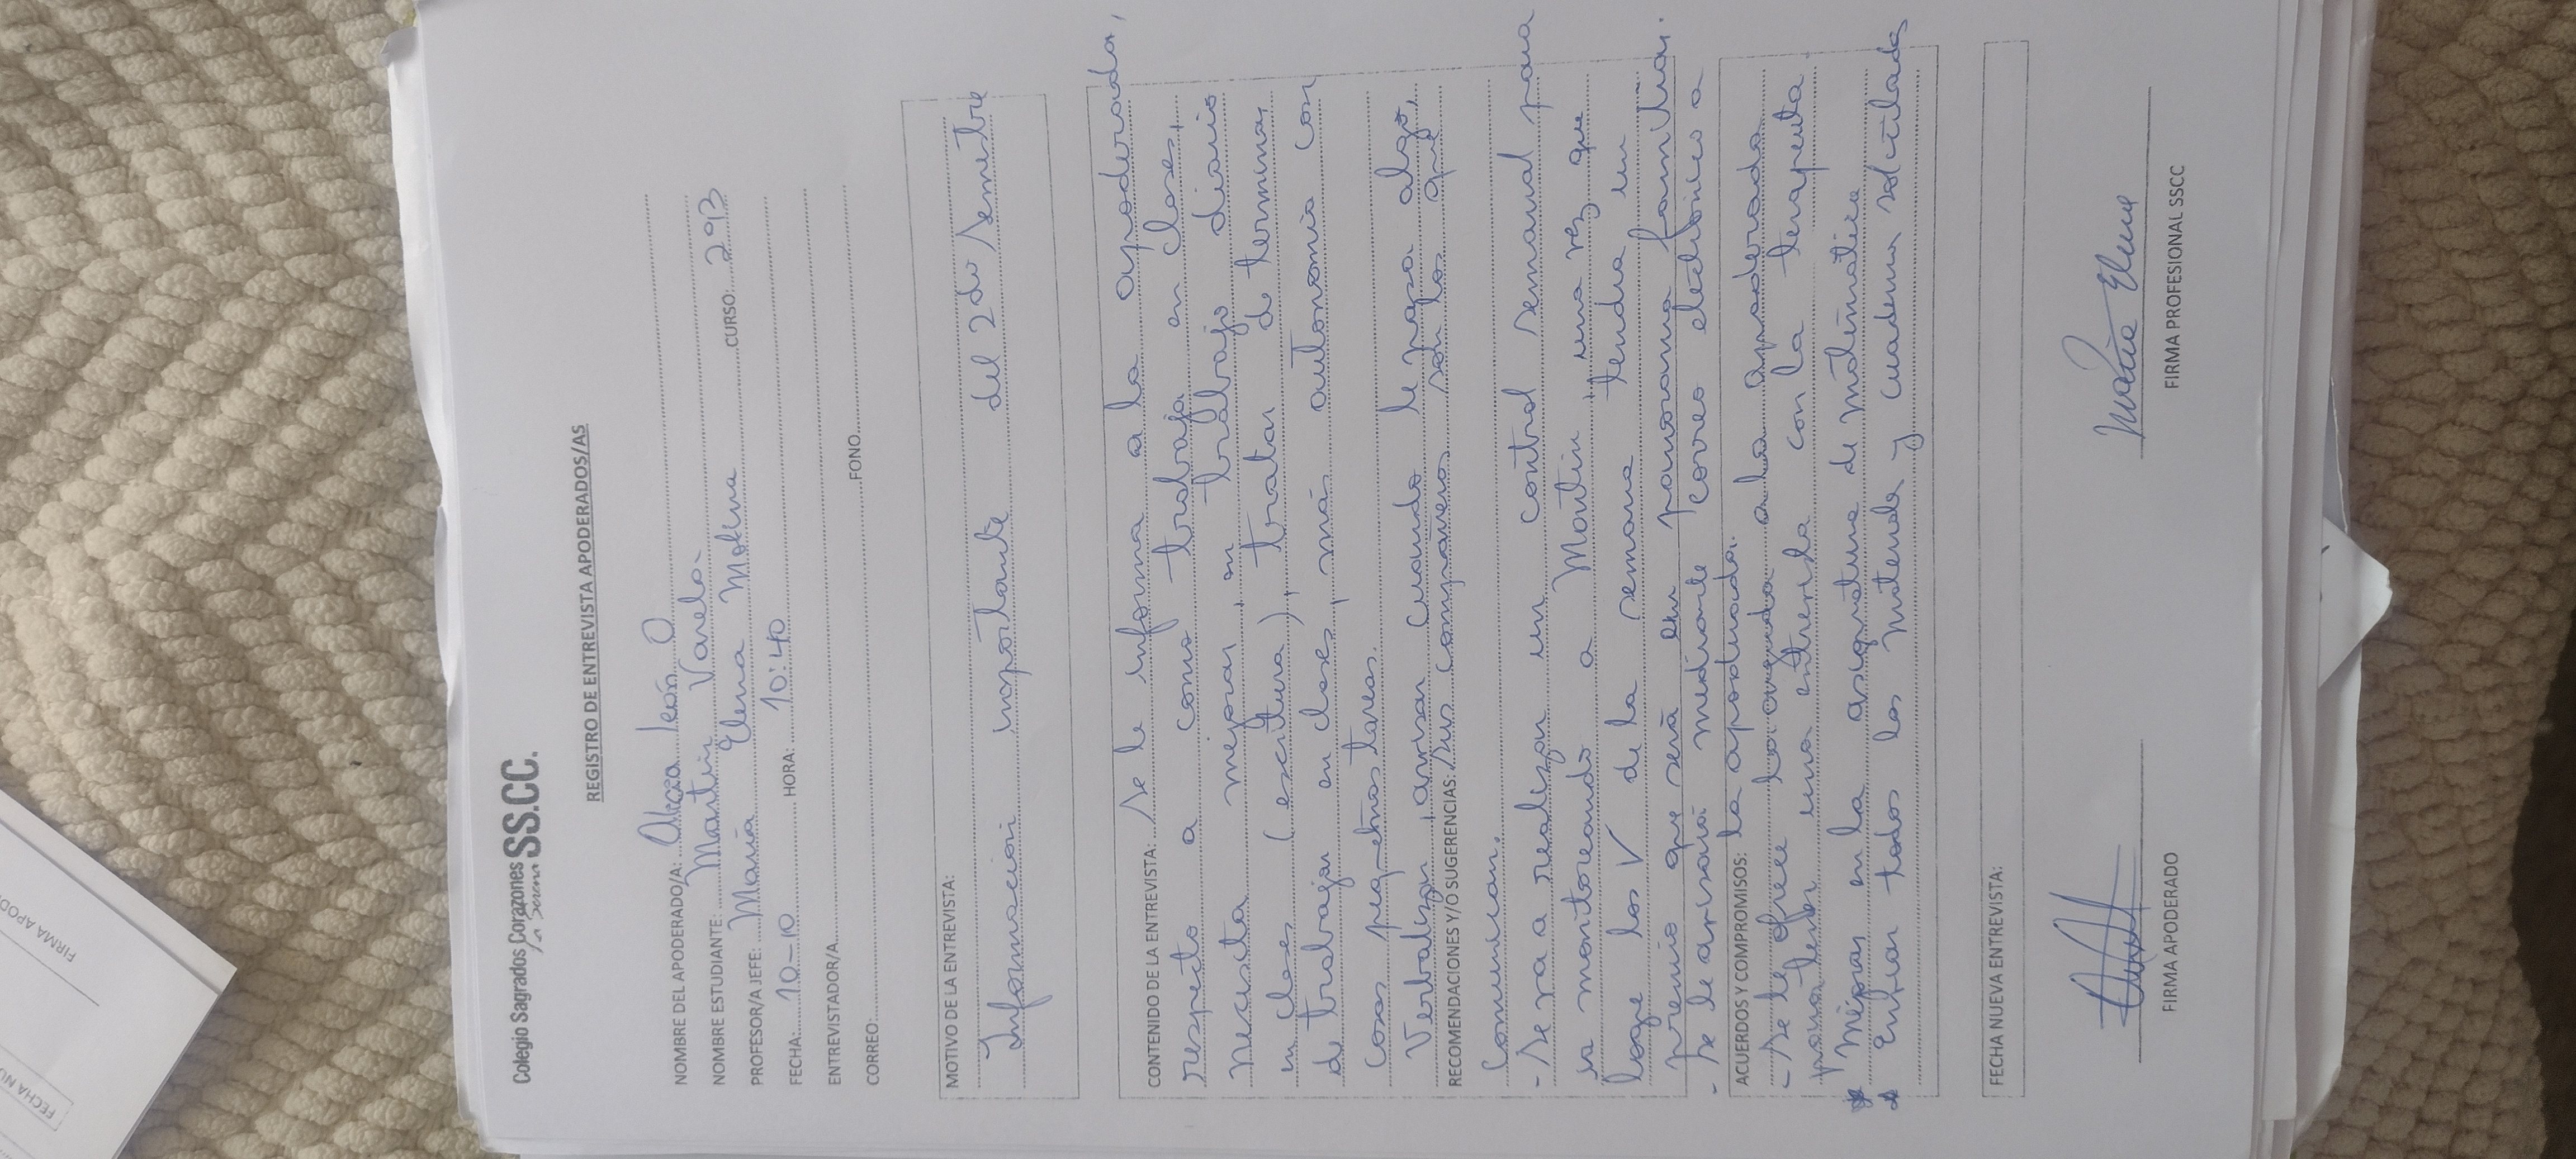 Colegio Sagrados Corazones SS.CC.
La Serena
REGISTRO DE ENTREVISTA APODERADOS/AS
NOMBRE DEL APODERADO/A: Alicia León O
NOMBRE ESTUDIANTE: Martín Varela
PROFESOR/A JEFE: María Elena Molina CURSO: 2ºB
FECHA: 10-10 HORA: 10:40
ENTREVISTADOR/A
CORREO: FONO
MOTIVO DE LA ENTREVISTA:
Información importante del 2do Semestre
CONTENIDO DE LA ENTREVISTA: Se le informa a la apoderada,
respecto a como trabaja en clases,
necesita mejorar, en trabajo diario
en clases (escritura), tratar de terminar
de trabajar en clases, más autonomía con
cosas
Verbalizar, avisar cuando le pasa algo,
RECOMENDACIONES Y/O SUGERENCIAS: sus compañeros son los que
comunican.
- Se va a realizar un control semanal para
ir monitoreando a Martín, una vez que
logre los V de la semana tendra un
premio que será un panorama familiar.
- Se le avisará mediante correo electrónico a
la apoderada.
ACUERDOS Y COMPROMISOS:
- Se le ofrece a la apoderada
una entrevista con la terapeuta
* Mejorar en la asignatura de Matemática
* Enviar todos los materiales y cuadernos solicitados
FECHA NUEVA ENTREVISTA:
FIRMA APODERADO
María Elena
FIRMA PROFESIONAL SSCC
FIRMA APOD
FECHA NU